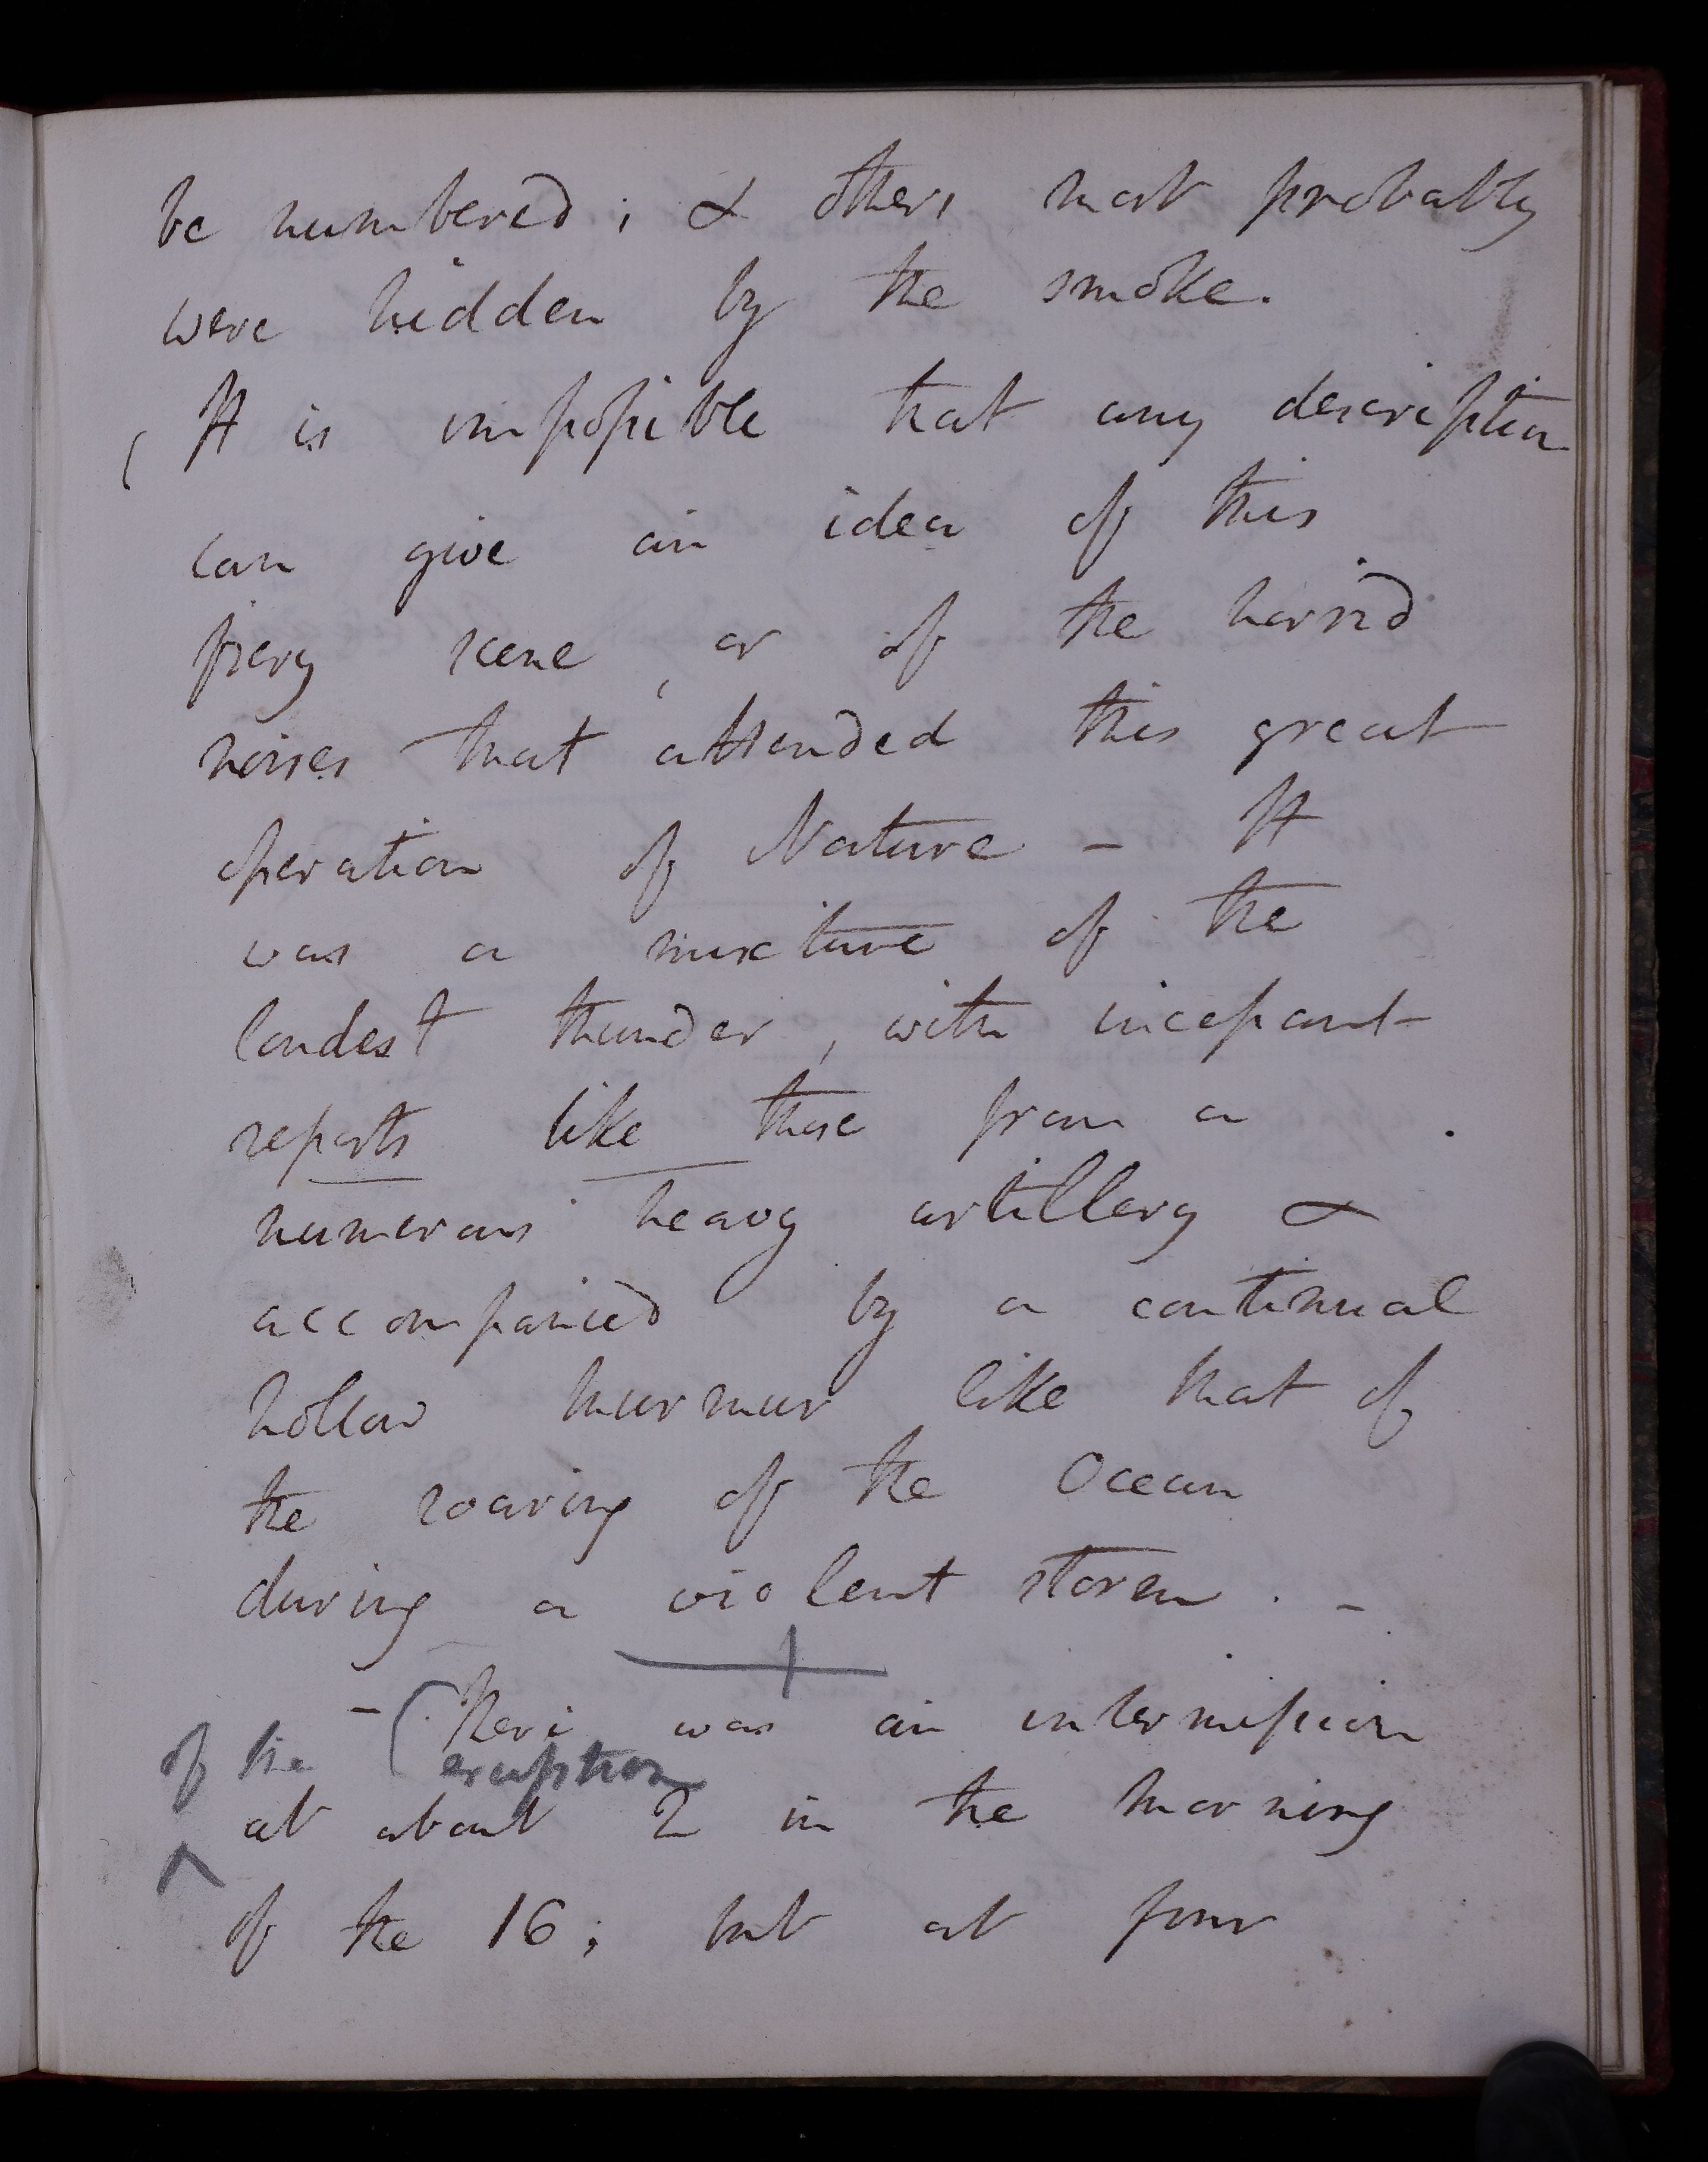 be numbered; & others most probably
were hidden by the smoke.
( It is impossible that any description
can give an idea of this
fiery scene, or of the horrid
noises that attended this great
operation of Nature - It
was a mixture of the
loudest thunder, with incessant
reports like those from a
numerous heavy artillery &
accompanied by a continual
hollow murmur like that of
the roaring of the Ocean
during a violent storm. -
- ( There was an intermission
of the eruption
at about 2 in the morning
of the 16; but at four